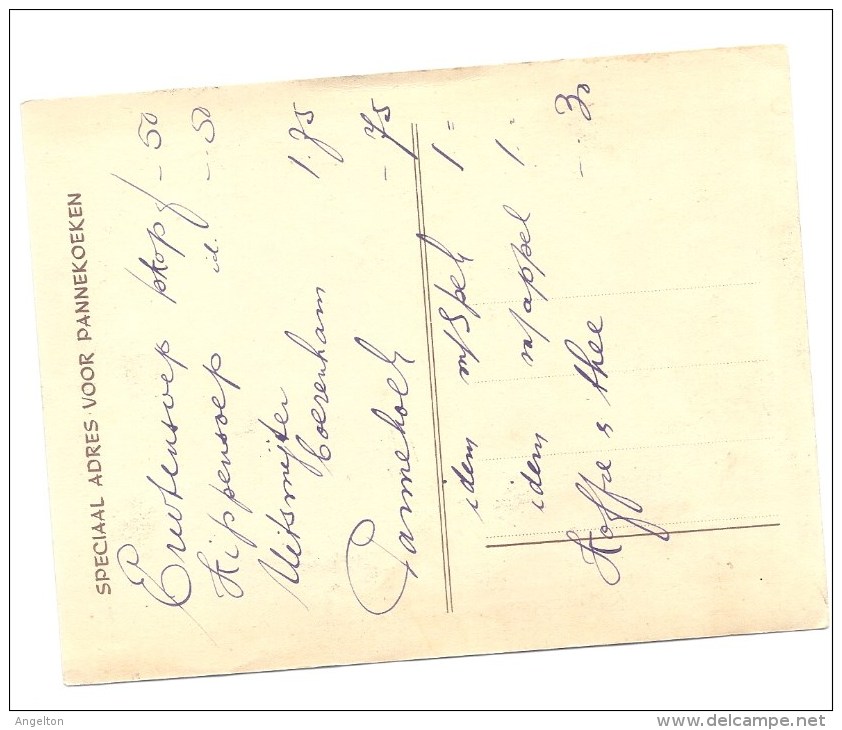 SPECIAAL ADRES VOOR PANNEKOEKEN
Erwtensoep p kop f -.50
Kippensoep id. -.50
Uitsmijter
boerenham 1.75
Pannekoek -.75
idem m/Spek 1.=
idem m/appel 1.-
Koffie & thee -.30
Angelton
www.delcampe.net